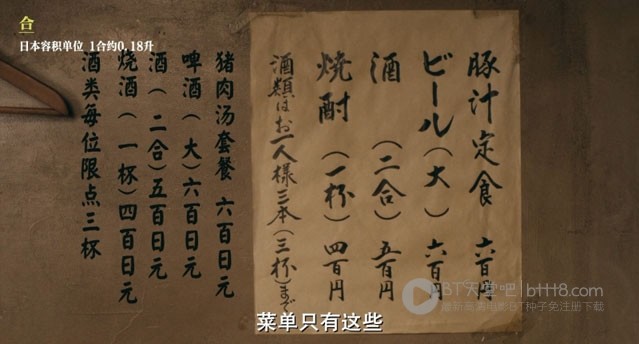 合
日本容积单位 1合约0.18升
豚汁定食 六百円
ビール(大) 六百円
酒(二合) 五百円
焼酎(一杯) 四百円
酒類はお一人様三本(三杯)まで
猪肉汤套餐 六百日元
啤酒(大)六百日元
酒(二合)五百日元
烧酒(一杯)四百日元
酒类每位限点三杯
BT天堂吧|btttt8.com
最新高清电影BT种子免注册下载
菜单只有这些